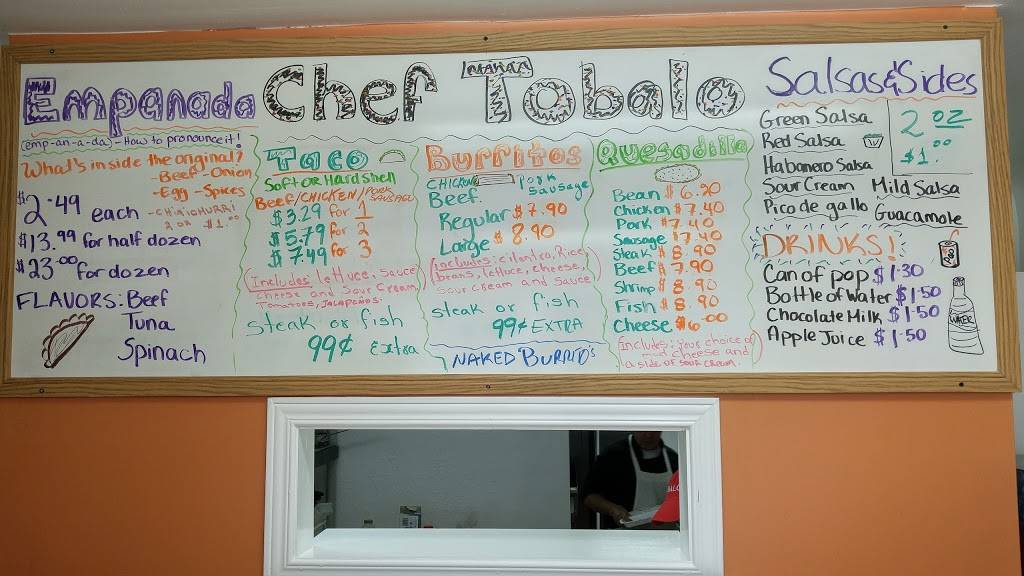 Empanada
(emp-an-a-da) - How to pronounce it!
What's inside the original?
- Beef - Onion
- Egg - Spices
- CHIMICHURRI
2 oz $1.00
$2.49 each
$13.99 for half dozen
$23.00 for dozen
FLAVORS: Beef
Tuna
Spinach
Chef Tobalo
Taco
Soft OR Hard shell
Beef/CHICKEN/PORK SAUSAGE
$3.29 for 1
$5.79 for 2
$7.49 for 3
(Includes lettuce, sauce
cheese and sour cream
Tomatoes, Jalapeños.
steak or fish
99¢ Extra
Burritos
CHICKEN Pork Sausage
Beef
Regular $7.90
Large $8.90
(includes: cilantro, Rice,
beans, lettuce, cheese,
sour cream and sauce
steak or fish
99¢ EXTRA
NAKED BURRITO'S
Quesadilla
Bean $6.90
Chicken $7.40
Pork $7.40
Sausage $7.40
Steak $8.90
Beef $7.90
Shrimp $8.90
Fish $8.90
Cheese $6.00
(includes: your choice of
cheese and
a side of sour cream.
Salsas & Sides
Green Salsa
Red Salsa
Habanero Salsa
Sour Cream Mild Salsa
Pico de gallo Guacamole
2 oz
$1.00
DRINKS!
Can of pop $1.30
Bottle of Water $1.50
Chocolate Milk $1.50
Apple Juice $1.50
WATER